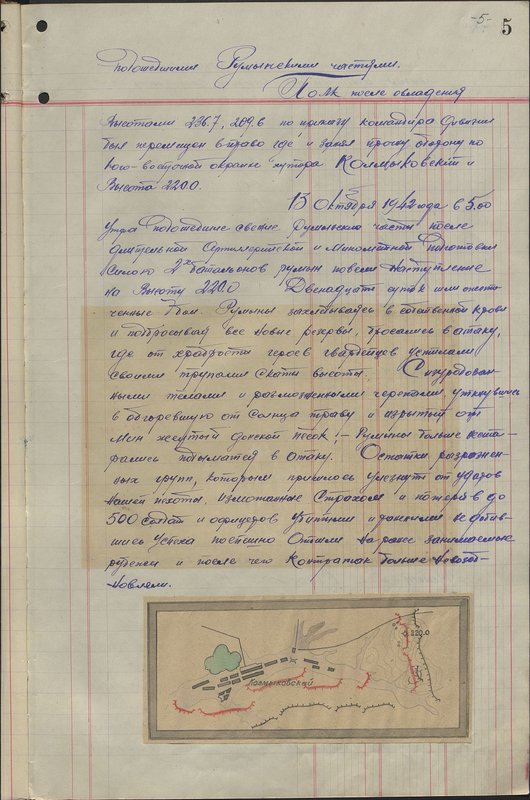 -5-
5
подошедшими Румынскими частями.
Полк после овладения
высотами 236.7, 209.6 по приказу командира дивизии
был перемещен вправо где и занял прочну оборону по
юго-восточной окраине хутора Калмыковский и
Высота 220.0.
13 Октября 1942 года в 5.00
утра подошедшие свежие Румынские части после
длительной Артилерийской и Минометной подготовки
Силою 2х батальонов румын повели наступление
на Высоту 220.0 Двенадцать суток шли ожесто-
ченные бои. Румыны захлебываясь в собственной крови
и подбрасывая все новые резервы, бросались в атаку,
где от храбрости героев гвардейцев устилали
своими трупами скаты высоты.
ными телами и размозженными черепами, уткнувшись
в обгоревшую от Солнца траву и изрытый от
Мин желтый донской песок — Румыны больше не ста-
рались подыматся в атаку. Остатки разрознен-
ных групп, которым пришлось улизнуть от ударов
нашей пехоты, измотанные Страхом и потерей до
500 солдат и офицеров убитыми и ранеными не добив-
шись успеха поспешно Отошли на ранее занимаемые
рубежи и после чего Контратак больше не возоб-
новляли.
220.0
Калмыковский